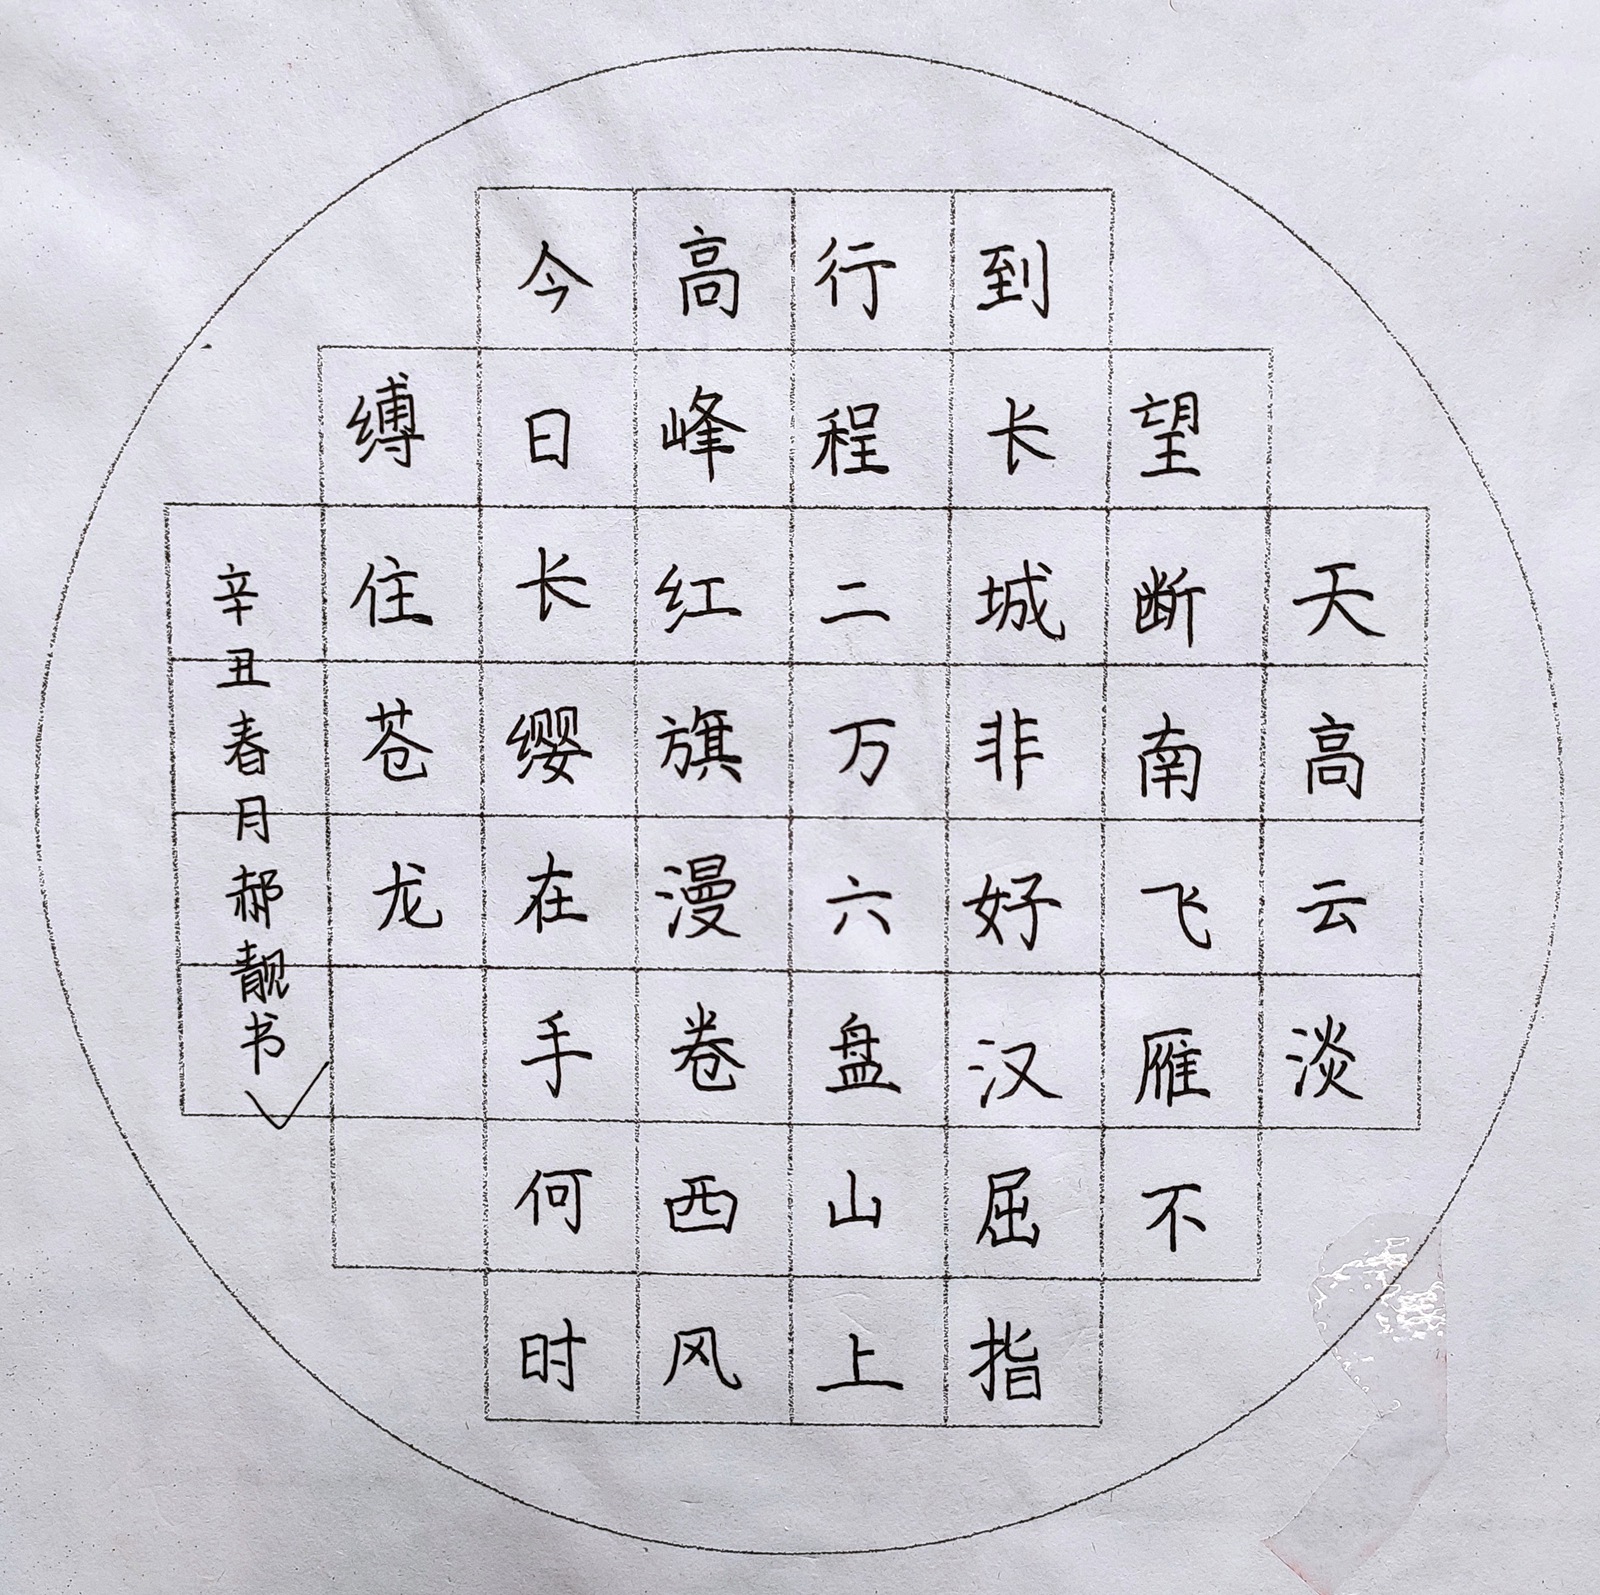 天高云淡
望断南飞雁不
到长城非好汉屈指
行程二万六盘山上
高峰红旗漫卷西风
今日长缨在手何时
缚住苍龙
辛丑春月郝靓书